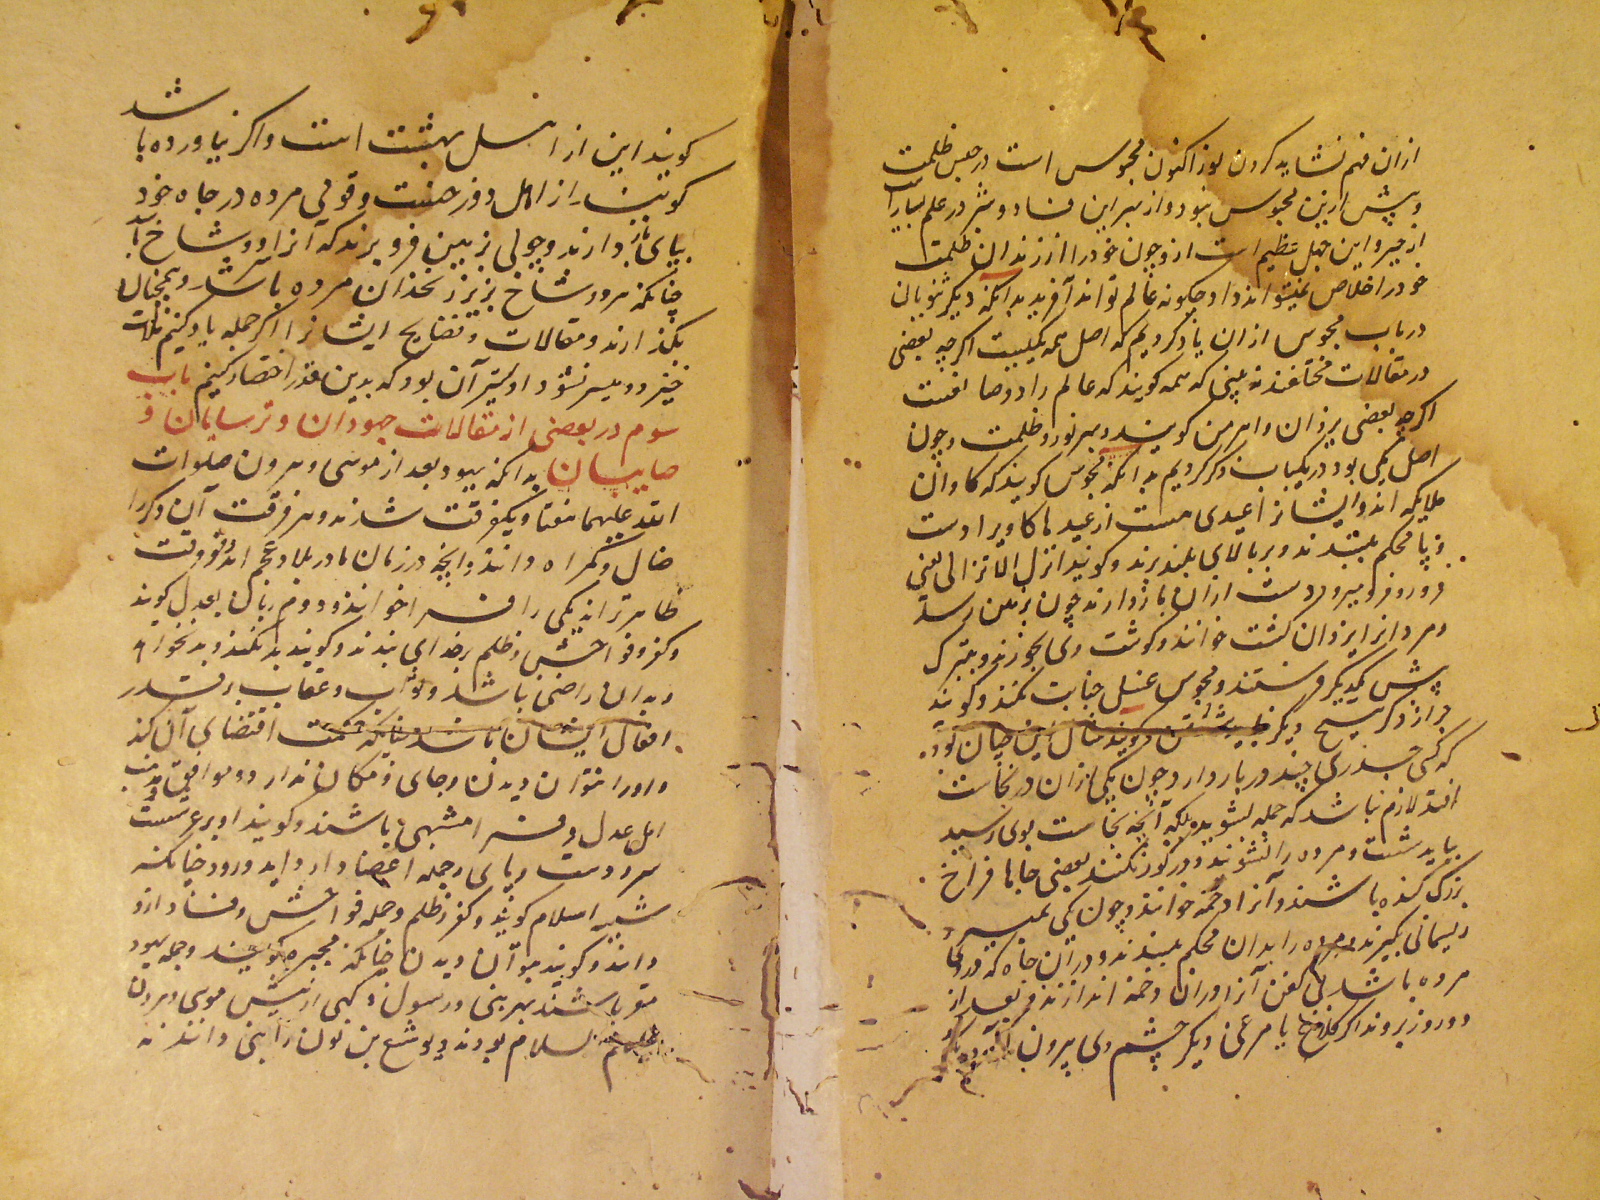 ازان فهم نشاید کردن نور اکنون محبوس است در حبس ظلمت
و پیش ازین محبوس نبود و از بهر این فساد و شر در علم بسیارست
از خیر و این جهل عظیم است از و چون خود را از زندان ظلمت
خود را خلاص نمیتواند داد چکونه عالم تواند آفرید بدانکه دیکر ثنویان
در باب مجوس ازان یاد کردیم که اصل همه یکیست اکرچه بعضی
در مقالات مختلفند نه بینی که همه کویند که عالم را دو صانعست
اکرچه بعضی یزدان و اهرمن کویند و بهر نور و ظلمت و چون
اصل یکی بود در یکباب ذکر کردیم بدانکه مجوس کویند که کاوان
ملایکه اند و ایشانرا عیدی هست از عید ها کاویرا دست
و پا محکم ببندند و بر بالای بلند برند و کویند انزل الا نزالی یعنی
فرو رو فرو میرو و دست ازان بازدارند چون بزمین رسد
و مردانرا یزدان کشت خوانند و کوشت وی بخورند و بتبرک
پیش یکدیکر فرستند و مجوس غسل جنابت نکنند و کویند
جز از ذکر هیچ دیکر
که کسی چیزی چند در بار دارد چون یکی ازان در نجاست
افتد لازم نباشد که جمله بشویند بلکه آنچه نجاست بوی رسید
بباید شست و مرده را نشویند و در کور نکنند بعضی جاها فراخ
بزرک کنده باشند و آنرا دخمه خوانند و چون یکی بمیرد
ریسمانی بکیرند و مرده را بدان محکم ببندند و دران خانه که دروی
مرده باشد بی کفن آنرا دران دخمه اندازند و بعد از
دو روز بروند اکر کلاغ یا مرغی دیکر چشم وی بیرون آورده باشد
کویند این از اهل بهشت است و اکر نیاورده باشد
کویند از اهل دوزخست و قومی مرده در چاه خود
بپای بازدارند و چوبی بزمین فرو برند که آنرا دو شاخ باشد
چنانکه هر دو شاخ بزیر زنخدان مرده باشد و همچنان
بکذارند و مقالات و فضایح ایشانرا اکر جمله یاد کنیم ملالت
خیزد و میسر نشود اولیتر آن بود که بدین قدر اختصار کنیم باب
سوم در بعضی از مقالات جهودان و ترسایان و
صابیان بدانکه یهود بعد از موسی و هرون صلوات
الله علیهما هفتاد و یکفرقت شدند و هر فرقت آن دکر را
ضال و کمراه دانند و آنچه در زمان ما در بلاد عجم اند دو فرقت
ظاهرترند یکی را قرا خوانند و دوم ربانی اهل کویند
و کفر و فواحش و ظلم بر خدای بندند و کویند بد نکند و بد نخواهد
و بدان راضی باشد و ثواب و عقاب بر قدر
افعال ایشان باشد چنانکه حکمت اقتضای آن کند
و او را نتوان دیدن و جای و مکان ندارد و موافق مذهب
اهل عدل و قرا مشبهی باشند و کویند او بر عرشست
سر و دست و پای و جمله اعضا دارد و آید و رود چنانکه
مشبه اسلام کویند و کفر و ظلم و جمله فواحش و فساد ازو
دانند و کویند بتوان دیدن چنانکه مجبره کویند و جمله یهود
مقر باشند بهر نبی و رسول که پیش از موسی و هرون
علیهم السلام بودند و یوشع بن نون را نبی دانند نه